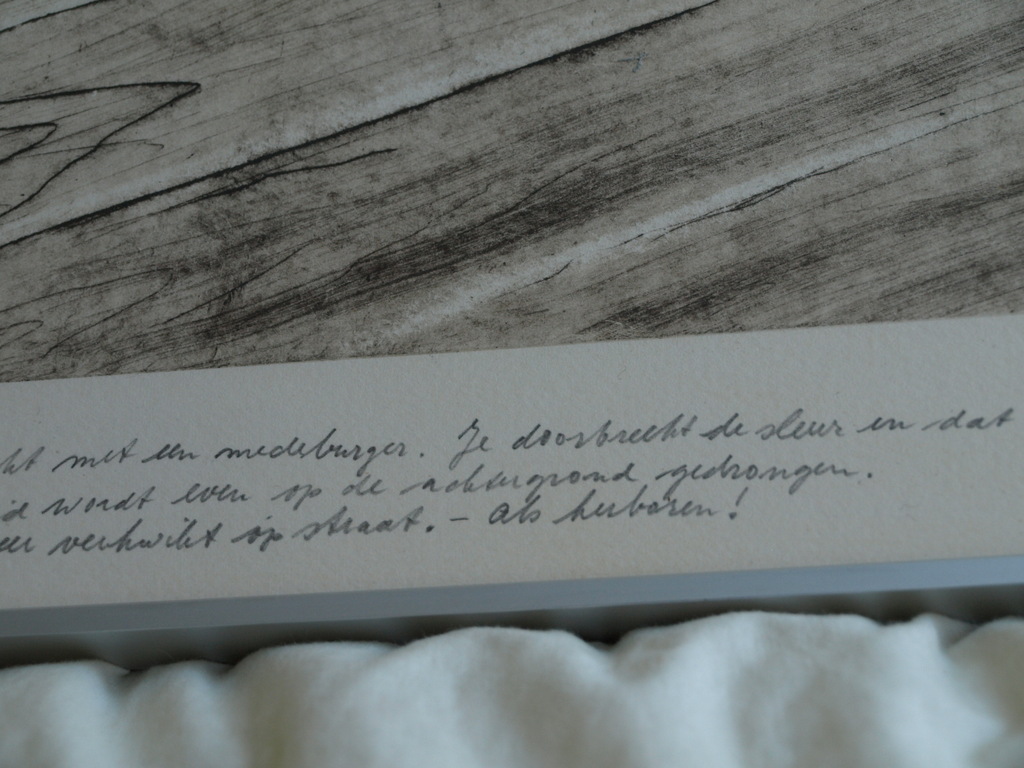 met een medeburger. Je doorbreekt de sleur en dat
wordt even op de achtergrond gedrongen.
verkwikt op straat. – als herboren!